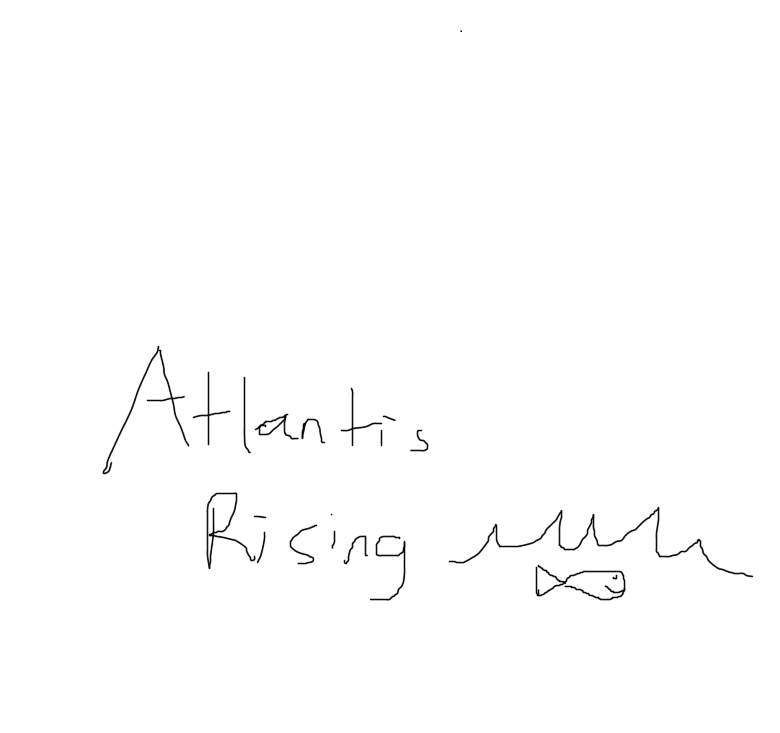 Atlantis
Rising